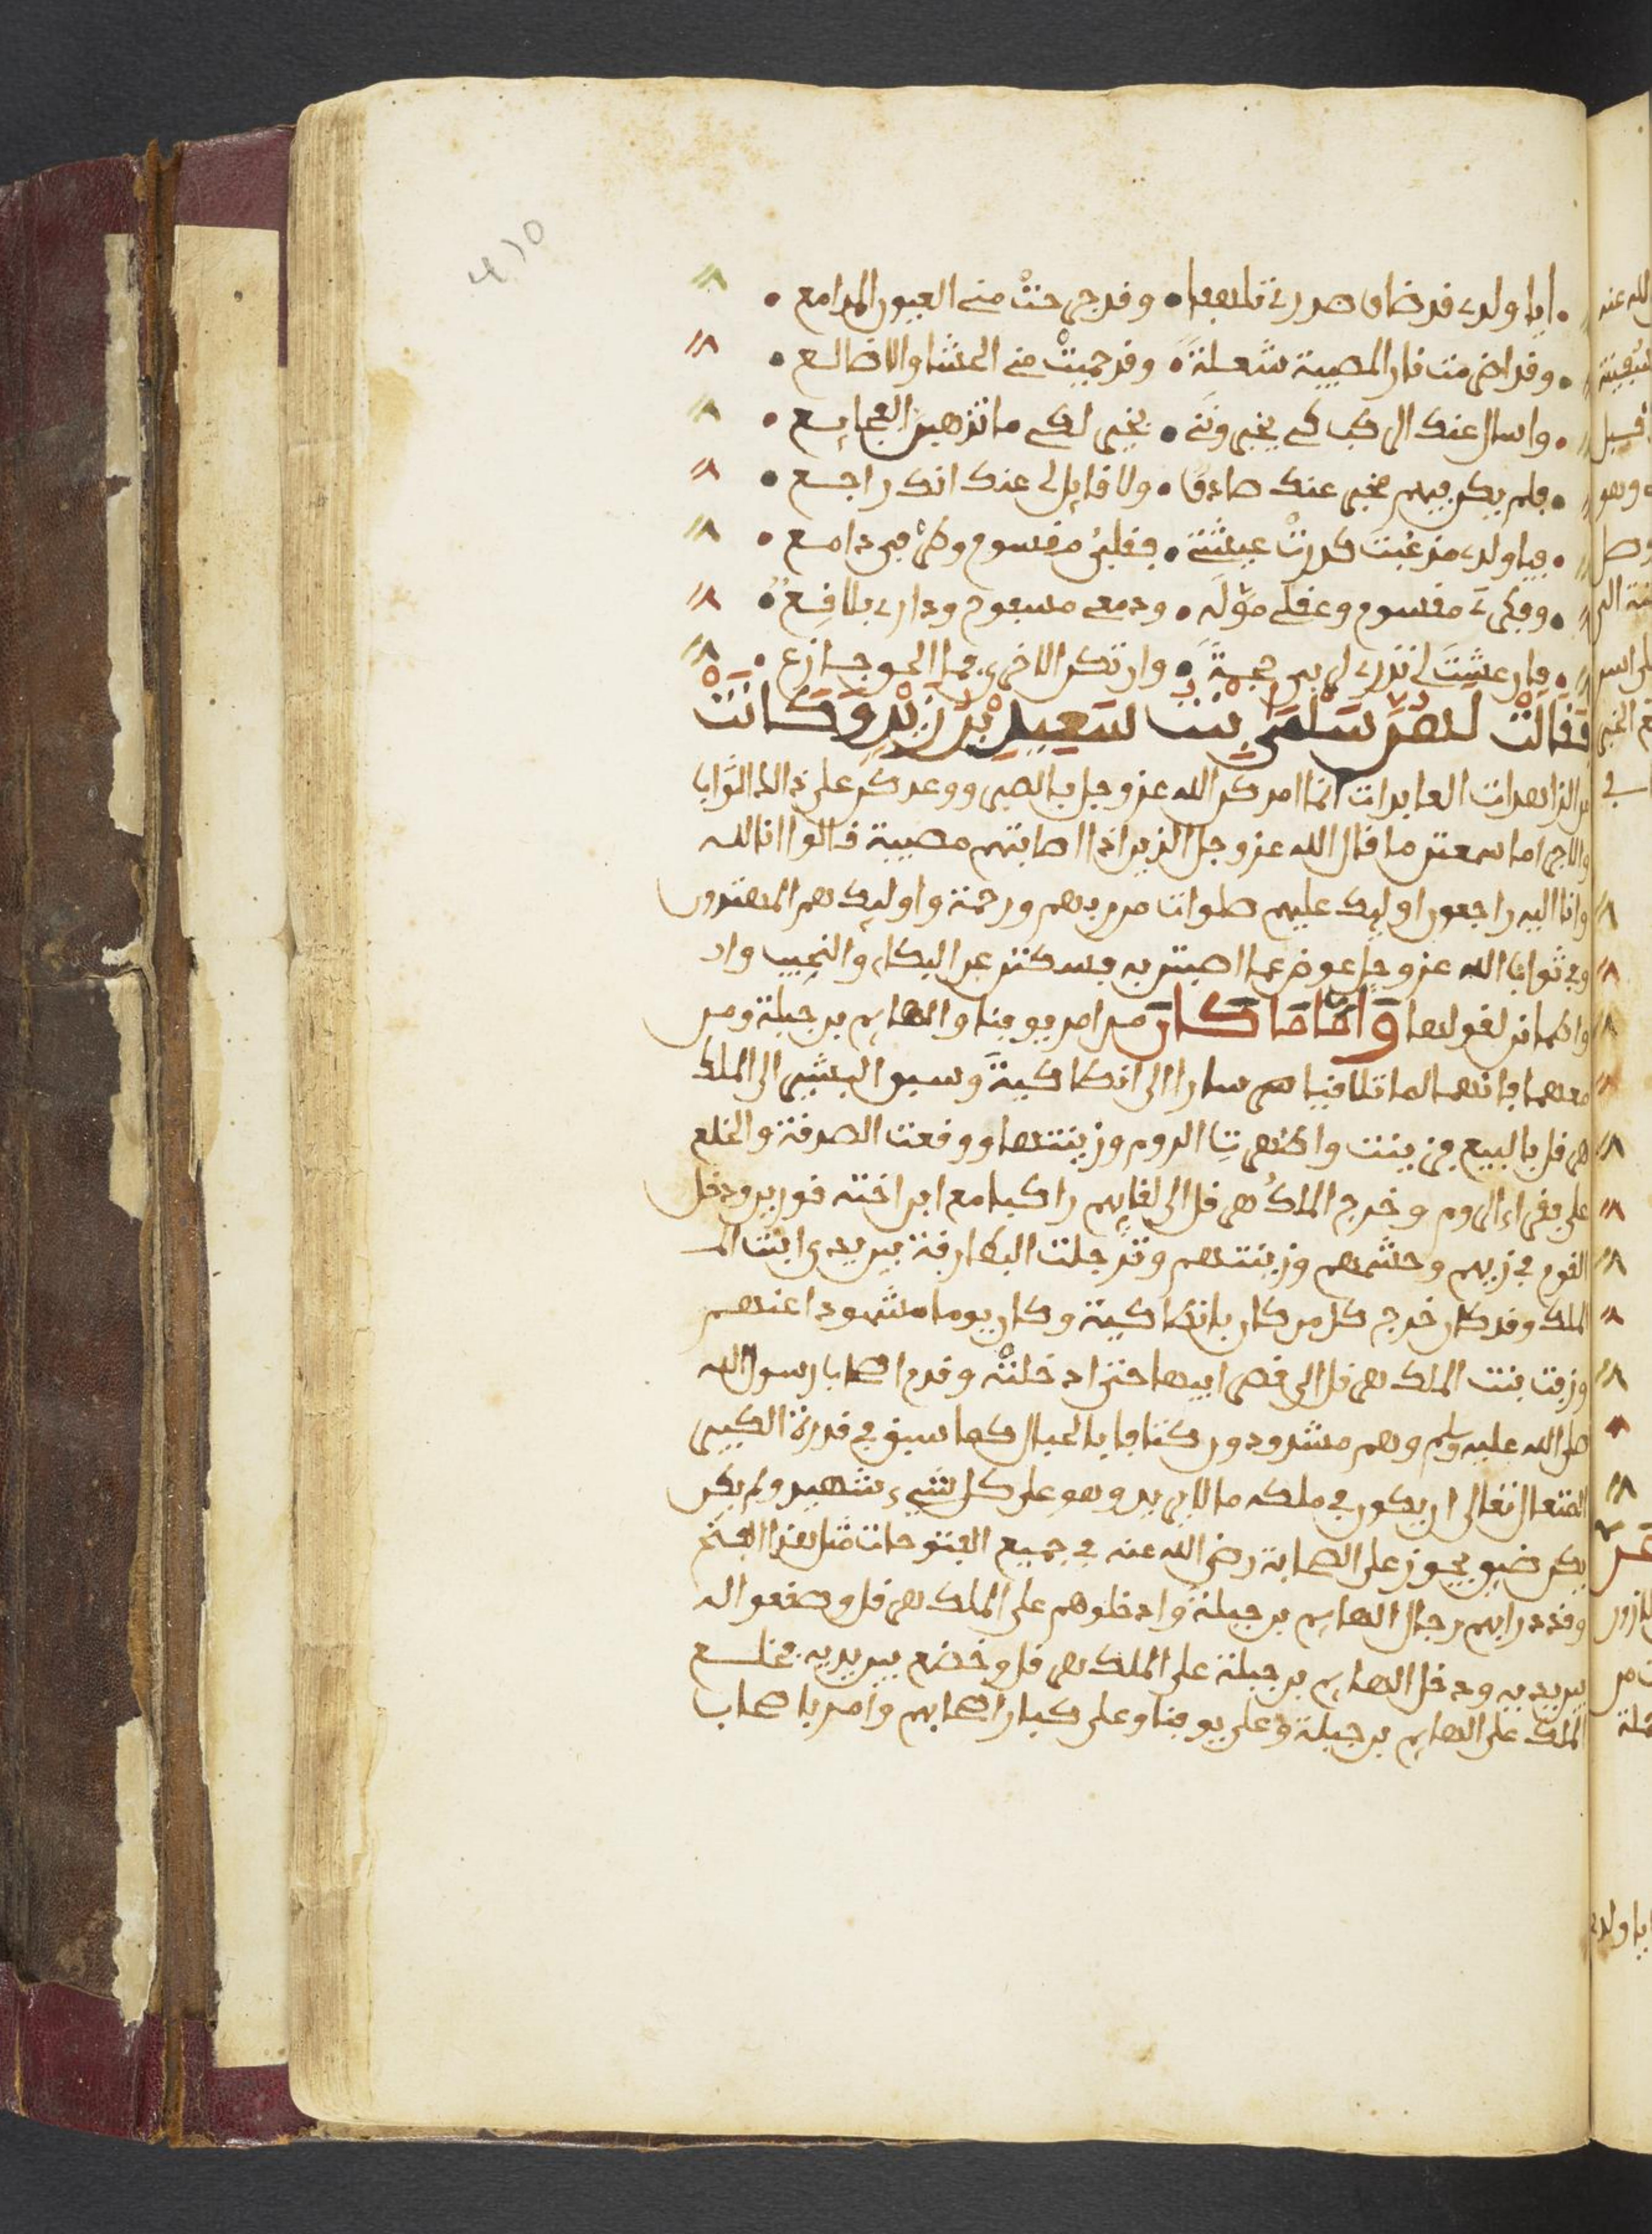 ايا ولدي قد ضاق صدري تلهفا • وقد جرحت مني العيون المدامع •
وقد اضرمت نار المصيبة شعلة • وقد حميت مني الحشا والاضالع •
واسال عنك الركب كي يخبرونني • يخبر لكي ما تزهير الفجايع •
فلم يكن فيهم مخبر عنك صادق • ولا قايل لي عنك انك راجع •
فيا ولدي مذ غبت كدرت عيشتي • فقلبي مقسوم وطرفي دامع •
وفكري مقسوم وعقلي موله • ودمعي مسفوح وداري بلاقع •
فان عشت لي نذرت لربي حجة • وان تكن الاخرى فما الحر جازع •
فقالت لهن سلمى بنت سعيد بن زيد وكانت
من الزاهدات العابدات انما امركن الله عز وجل بالصبر ووعدكن على ذالك الثواب
والاجر اما سمعتن ما قال الله عز وجل الذين اذا اصابتهم مصيبة قالوا انا لله
وانا اليه راجعون اوليك عليهم صلوات من ربهم ورحمة واوليك هم المهتدون
وفي ثواب الله عز وجل عوض عما اصبتن به فسكتن عن البكاء والنحيب واد
واطمانن لقولها واما ما كان من امر يوقنا والهايم بن جبلة ومن
معهما فانهما لما تلاقيا هم سارا الى انطاكية وسبق البشير الى الملك
هرقل بالبيع فزينت واظهرت الروم وزينتها ووقعت الصدقة والخلع
على فقراء الروم وخرج الملك هرقل الى لقايهم راكبا مع ابن اخته قورين ودخل
القوم في زيهم وحشمهم وزينتهم وترجلت البطارقة بين يدي ابنت الم
الملك وقد كان خرج كل من كان بانطاكية وكان يوما مشهودا عندهم
وزفت بنت الملك هرقل الى قصر ابيها حتى ادخلته وقدم اصحاب رسول الله
صلى الله عليه وسلم وهم مشدودون كتافا بالحبال كما سبق في قدرة الكبير
المتعال تعالى ان يكون في ملكه ما لا يريد وهو على كل شيء شهيد ولم يكن
يكن ضيق يجوز على الصحابة رضي الله عنه في جميع الفتوحات مثل هذا الفتح
وقد دار بهم رجال الهايم بن جبلة وادخلوهم على الملك هرقل وصقعوا له
بين يديه ودخل الهايم بن جبلة على الملك هرقل وخضع بين يديه فخلع
الملك على الهايم بن جبلة وعلى يوقنا وعلى كبار اصحابهم وامر باصحاب